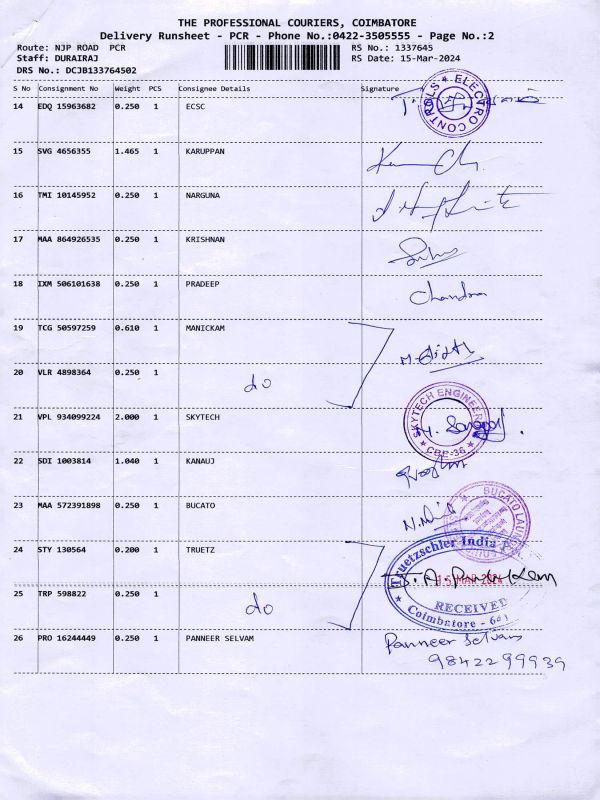 THE PROFESSIONAL COURIERS, COIMBATORE
Delivery Runsheet - PCR - Phone No.:0422-3505555 - Page No.:2
Route: NJP ROAD PCR RS No.: 1337645
Staff: DURAIRAJ RS Date: 15-Mar-2024
DRS No.: DCJB133764502
S No Consignment No Weight PCS Consignee Details Signature
14 EDQ 15963682 0.250 1 ECSC
ELECTRO CONTROLS
15 SVG 4656355 1.465 1 KARUPPAN
16 TMI 10145952 0.250 1 NARGUNA
17 MAA 864926535 0.250 1 KRISHNAN
18 IXM 506101638 0.250 1 PRADEEP
Chandra
19 TCG 50597259 0.610 1 MANICKAM
20 VLR 4898364 0.250 1
do
21 VPL 934099224 2.000 1 SKYTECH
SKYTECH ENGINEER
CBE-36
22 SDI 1003814 1.040 1 KANAUJ
23 MAA 572391898 0.250 1 BUCATO
BUCATO
24 STY 130564 0.200 1 TRUETZ
Truetzschler India
15 MAR 2024
RECEIVED
Coimbatore - 641
25 TRP 598822 0.250 1
do
26 PRO 16244449 0.250 1 PANNEER SELVAM
Panneer Selvam
9842299939